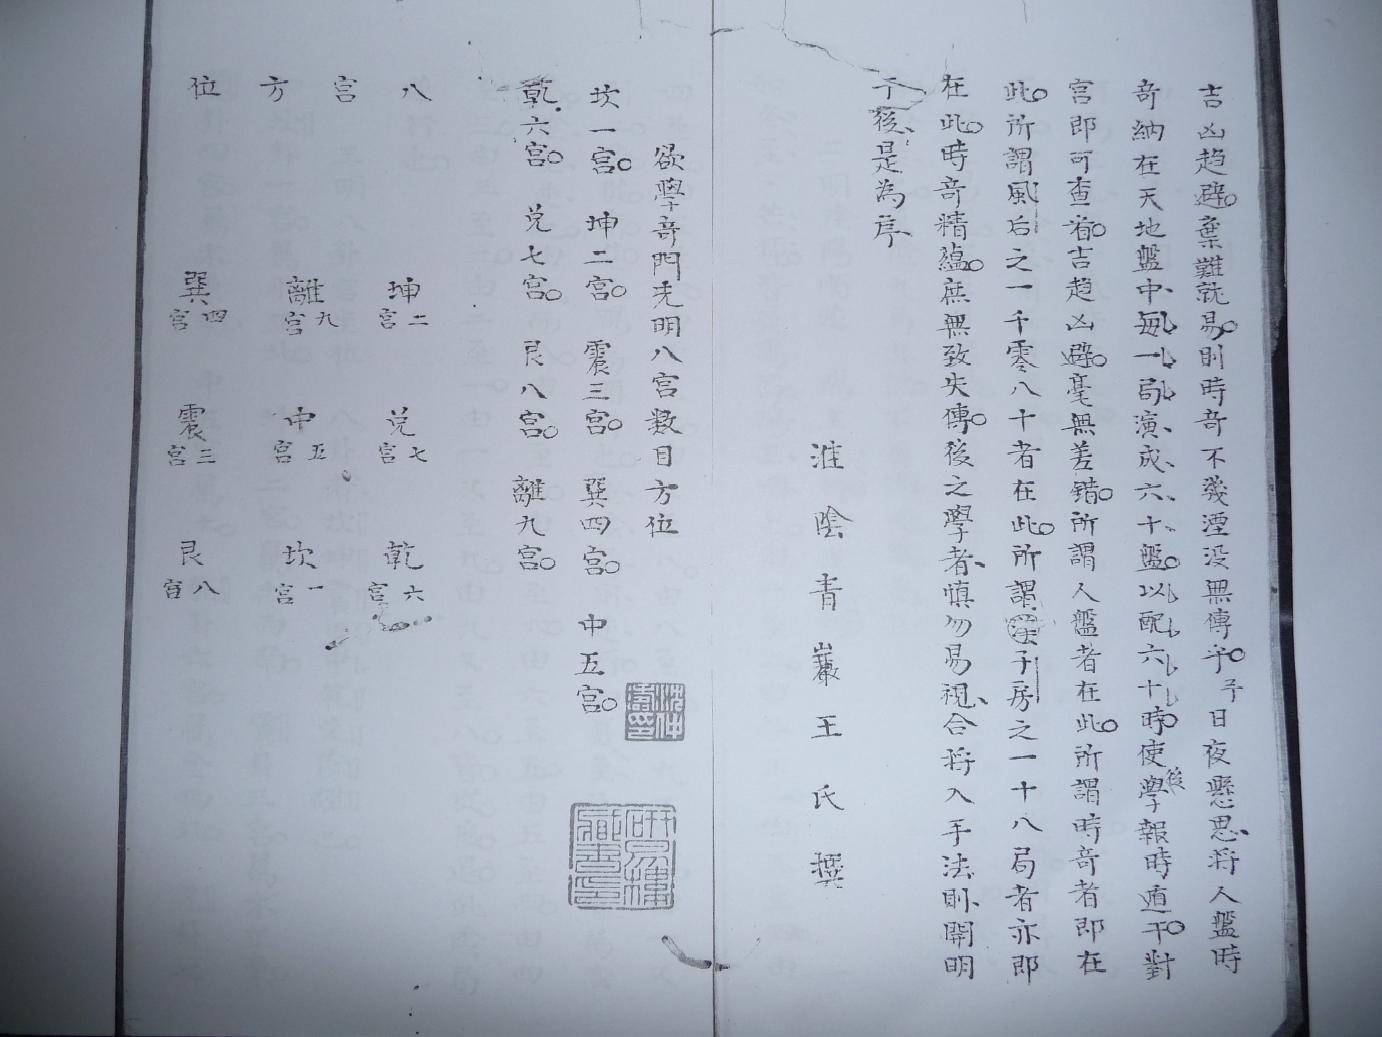 吉凶趨避棄難就易則時奇不幾湮没無傳乎予日夜懸思将人盤時
奇納在天地盤中每一局演成六十盤以配六十時使後學報時直干對
宮即可查看吉趨凶避毫無差錯所謂人盤者在此所謂時奇者即在
此所謂風后之一千零八十者在此所謂子房之一十八局者亦即
在此時奇精蘊庶無致失傳後之學者慎勿易視合将入手法則開明
于後是為序
淮陰青巖王氏撰
欲學奇門先明八宮數目方位
坎一宮 坤二宮 震三宮 巽四宮 中五宮
乾六宮 兑七宮 艮八宮 離九宮
八宮方位
坤二宮 兑七宮 乾六宮
離九宮 中五宮 坎一宮
巽四宮 震三宮 艮八宮
研易樓藏書印